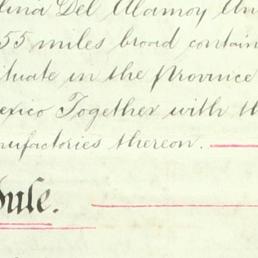 Del Alamo y Un
55 miles broad contain
ituate in the Province
exico Together with th
nufactories thereon.